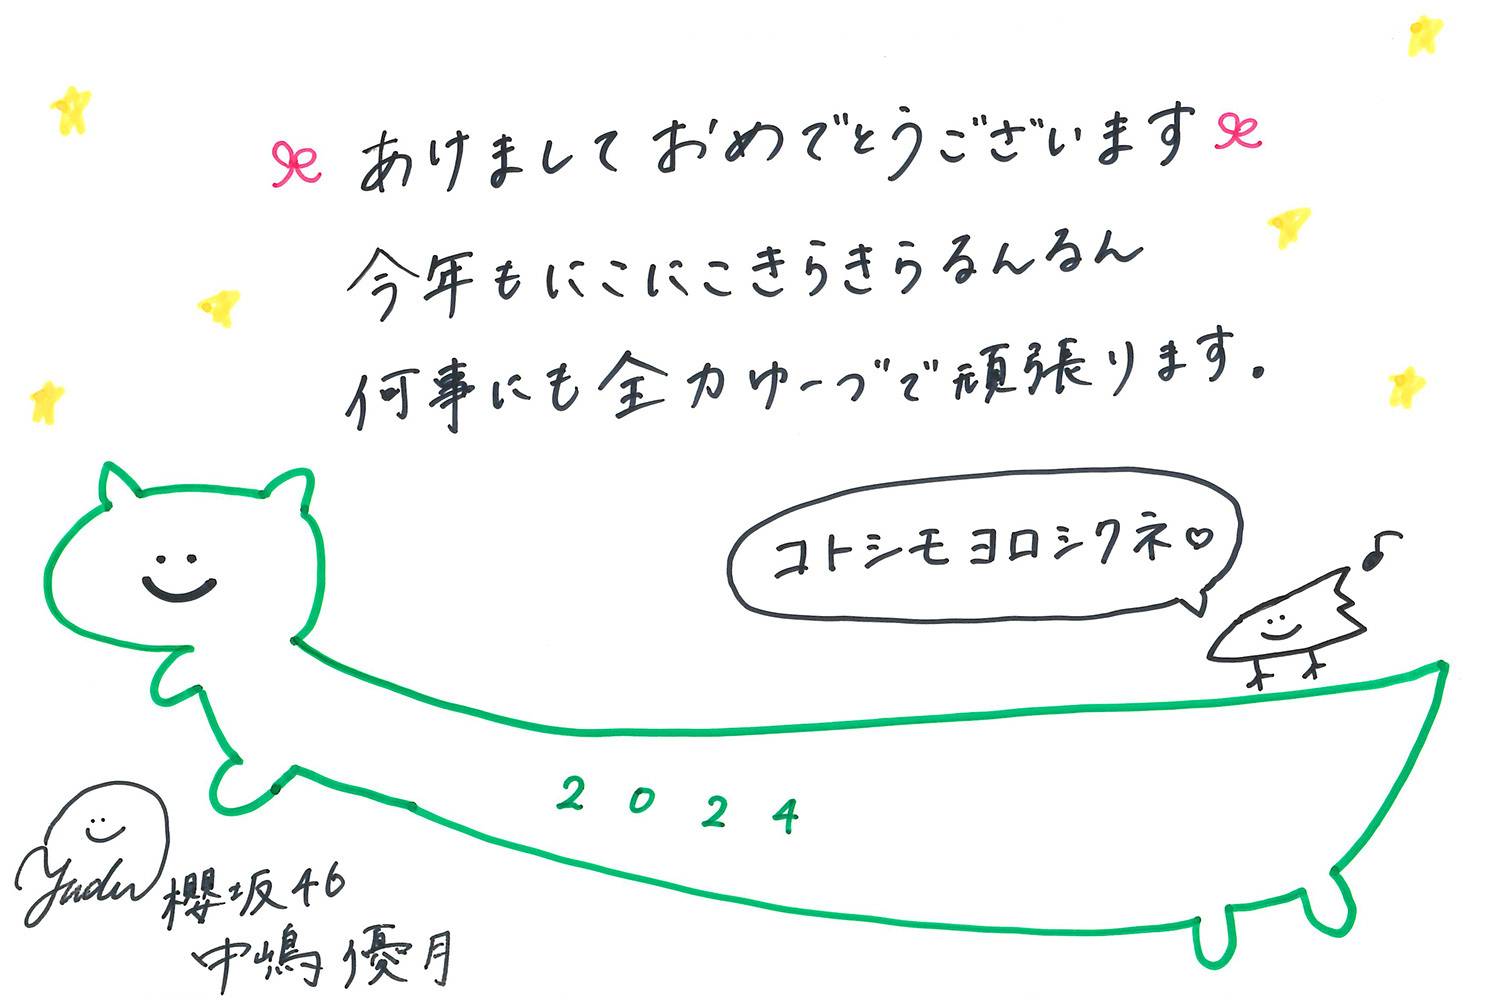 あけましておめでとうございます
今年もにこにこきらきらるんるん
何事にも全力ゆーづで頑張ります。
コトシモヨロシクネ♡
2024
Yudu
櫻坂46
中嶋優月